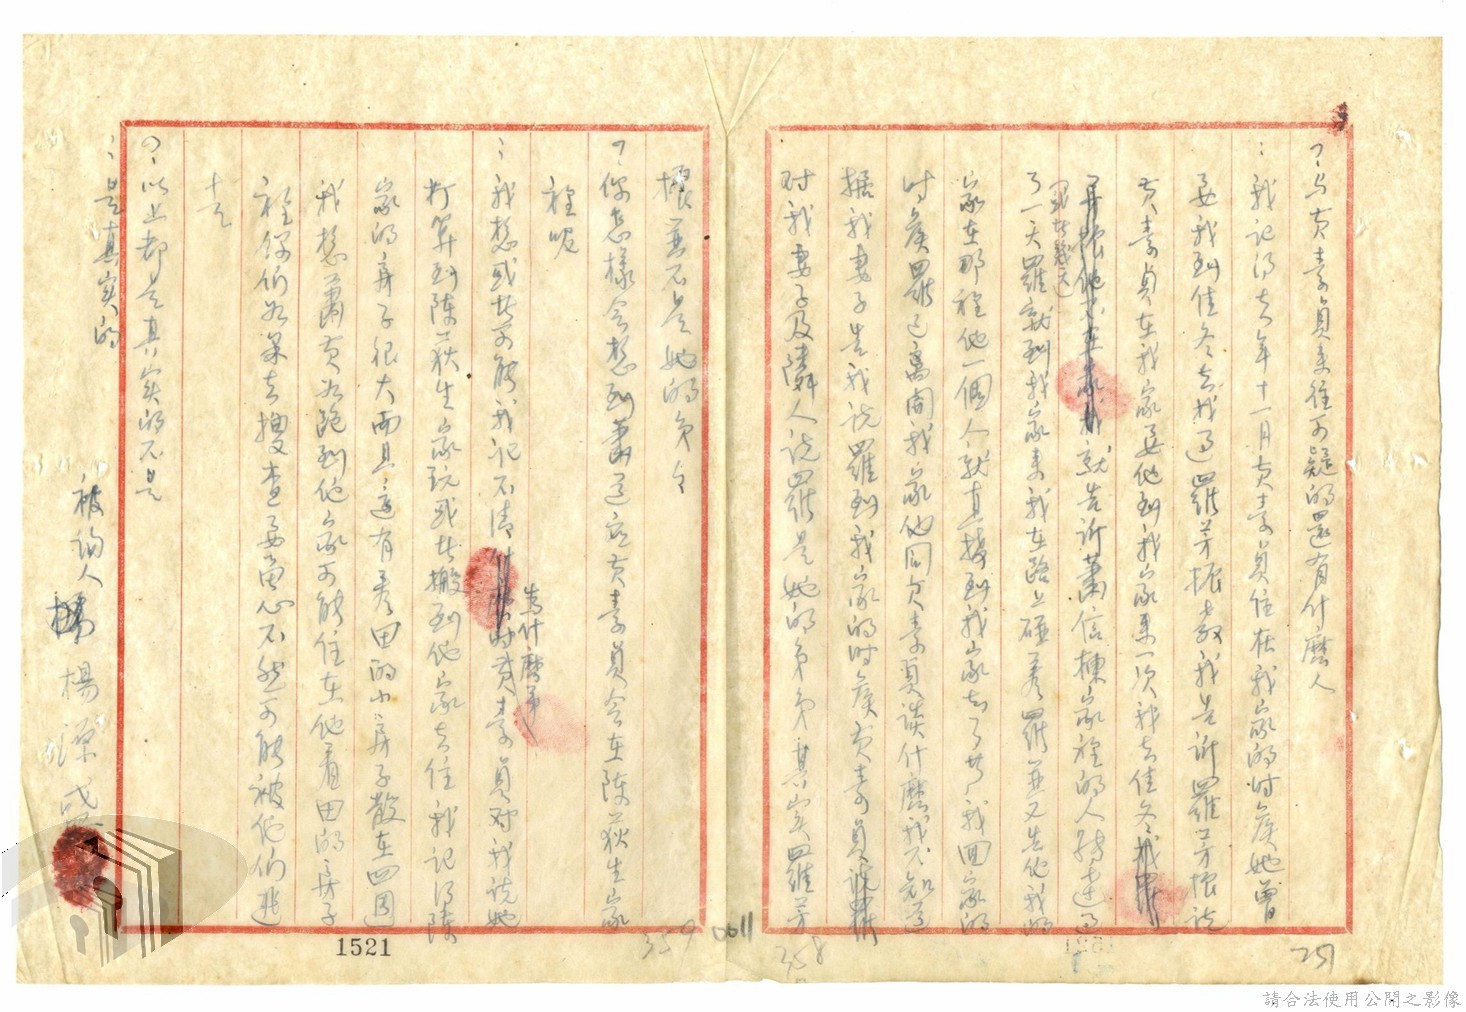 コ：与黃素貞來往可疑的還有什麼人
：我記得去年十一月黃素貞住在我家的时候她曾
要我到佳冬去找過羅芳振教我告訴羅芳振說
黃素貞在我家要他到我家來一次我去佳冬
就告訴蕭信棟家裡的人轉達過
了一天羅就到我家來我在路上碰着羅並又告他我的
家在那裡他一個人就直接到我家去了 我回家的
时候羅已離開我家他同黃素貞談什麼我不知道
据我妻子告我說羅到我家的时候黃素貞
对我妻子及隣人說羅是她的弟弟其实羅芳
振並不是她的弟々
コ：你怎樣会想到蕭道应黃素貞会在陈荻生家
裡呢
：我想或者可能我記不清為什麼事黃素貞对我說她
打算到陈荻生家玩或者搬到他家去住我記得陈
家的房子很大而且還有看田的小房子散在四週
我想蕭黃如跑到他家可能住在他看田的房子
裡你们如果去搜查要留心不然可能被他们逃
走
コ：以上都是真实的不是
：是真实的
被询人 楊
1521
359
0011
358
請合法使用公開之影像